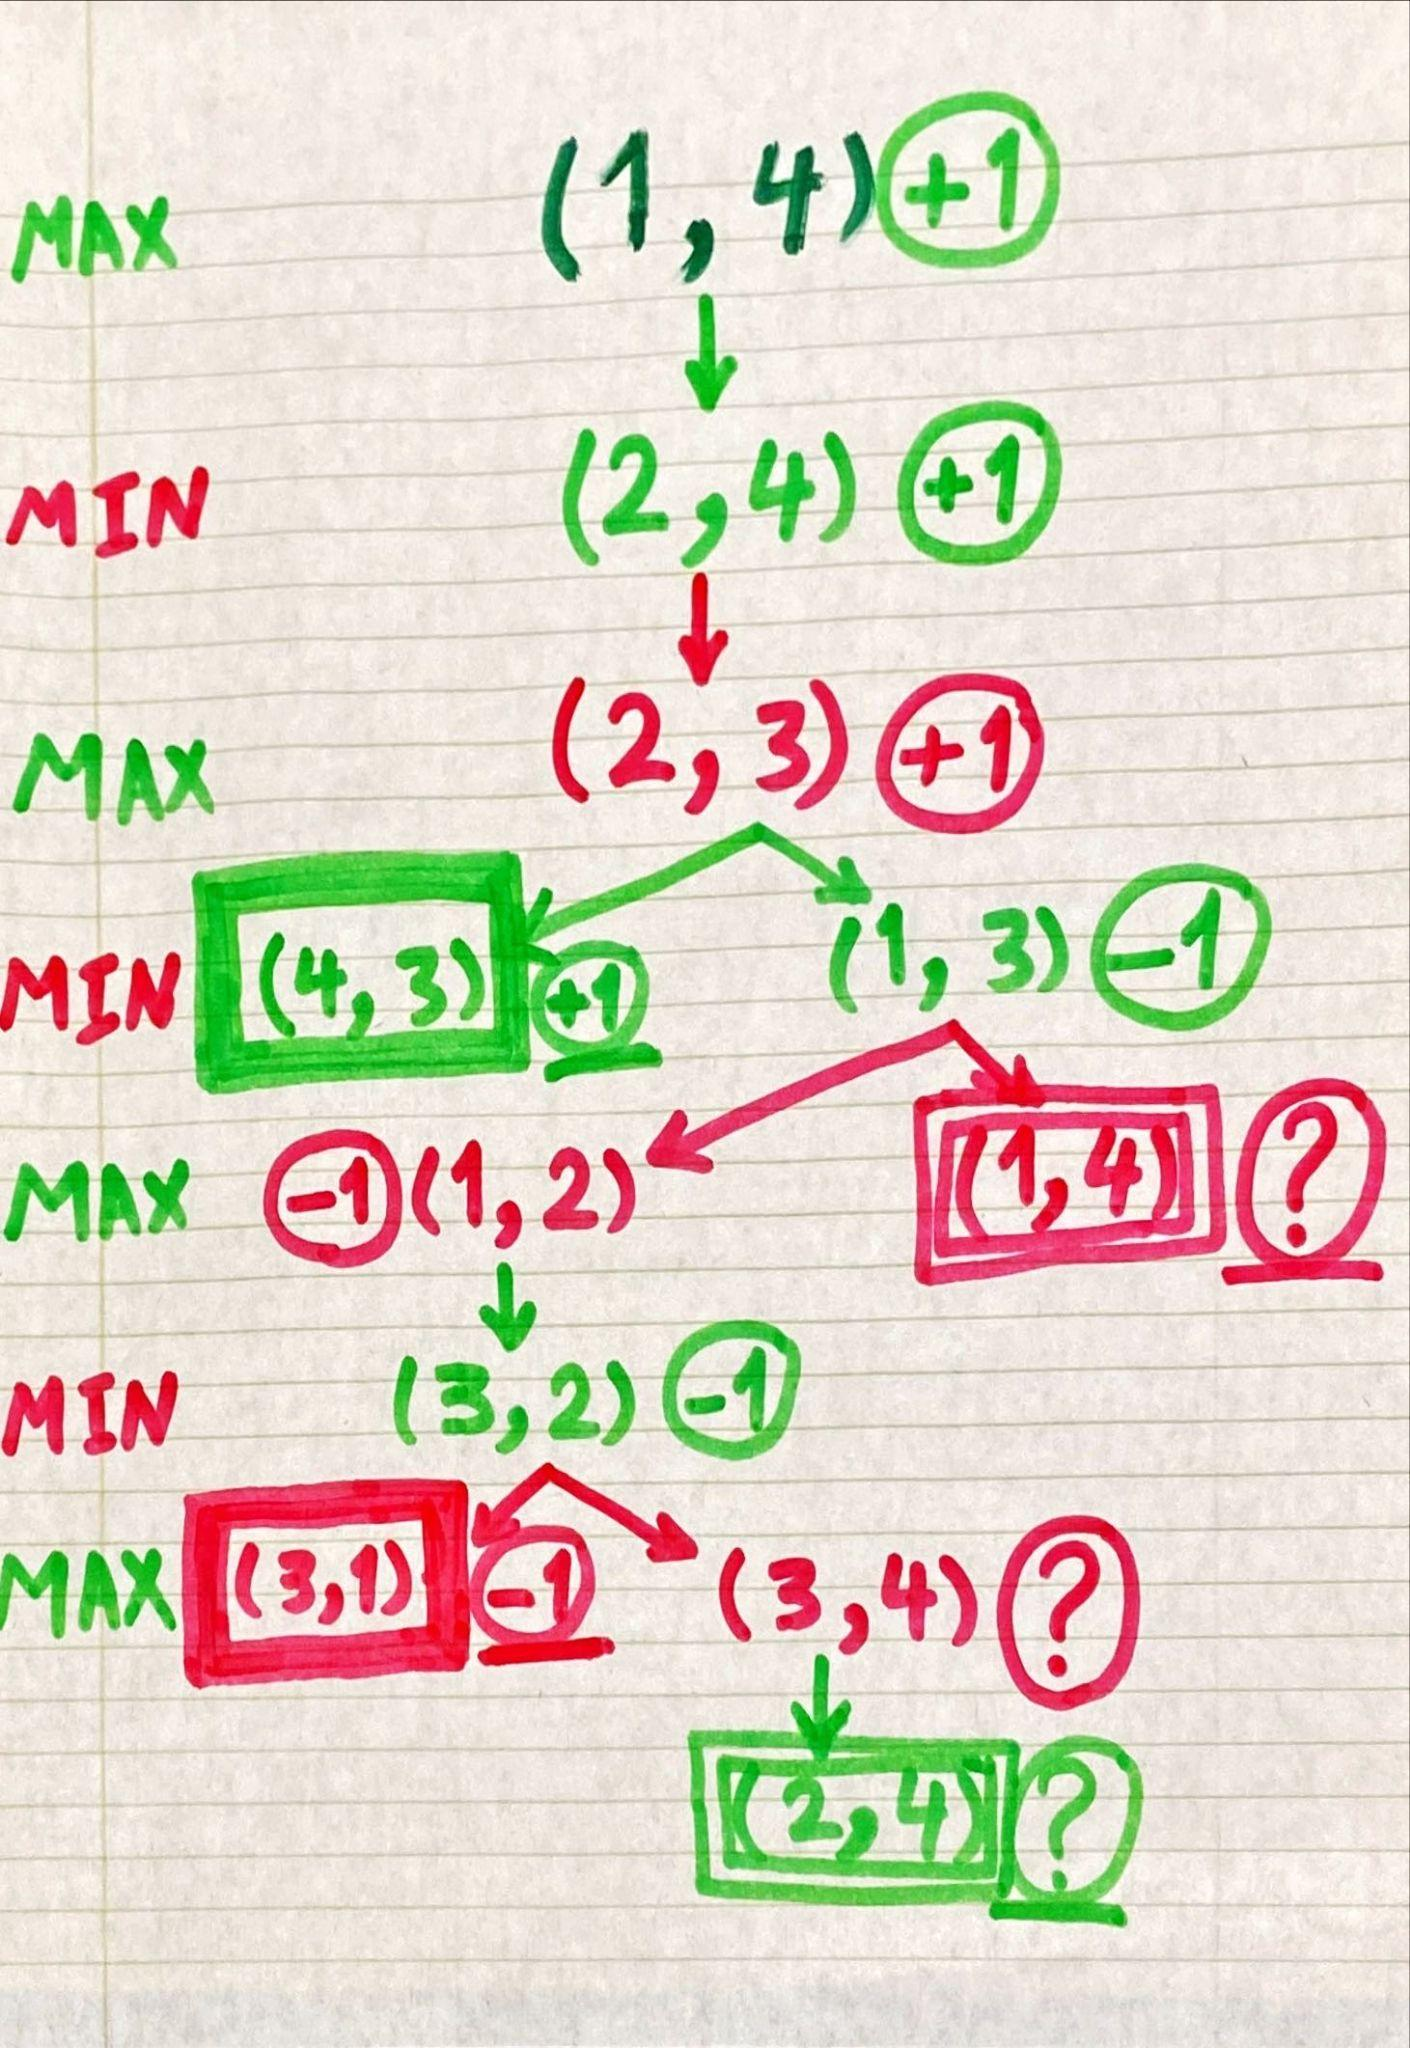 MAX (1, 4) +1
MIN (2, 4) +1
MAX (2, 3) +1
MIN (4, 3) +1 (1, 3) -1
MAX -1 (1, 2) (1, 4) ?
MIN (3, 2) -1
MAX (3, 1) -1 (3, 4) ?
(2, 4) ?